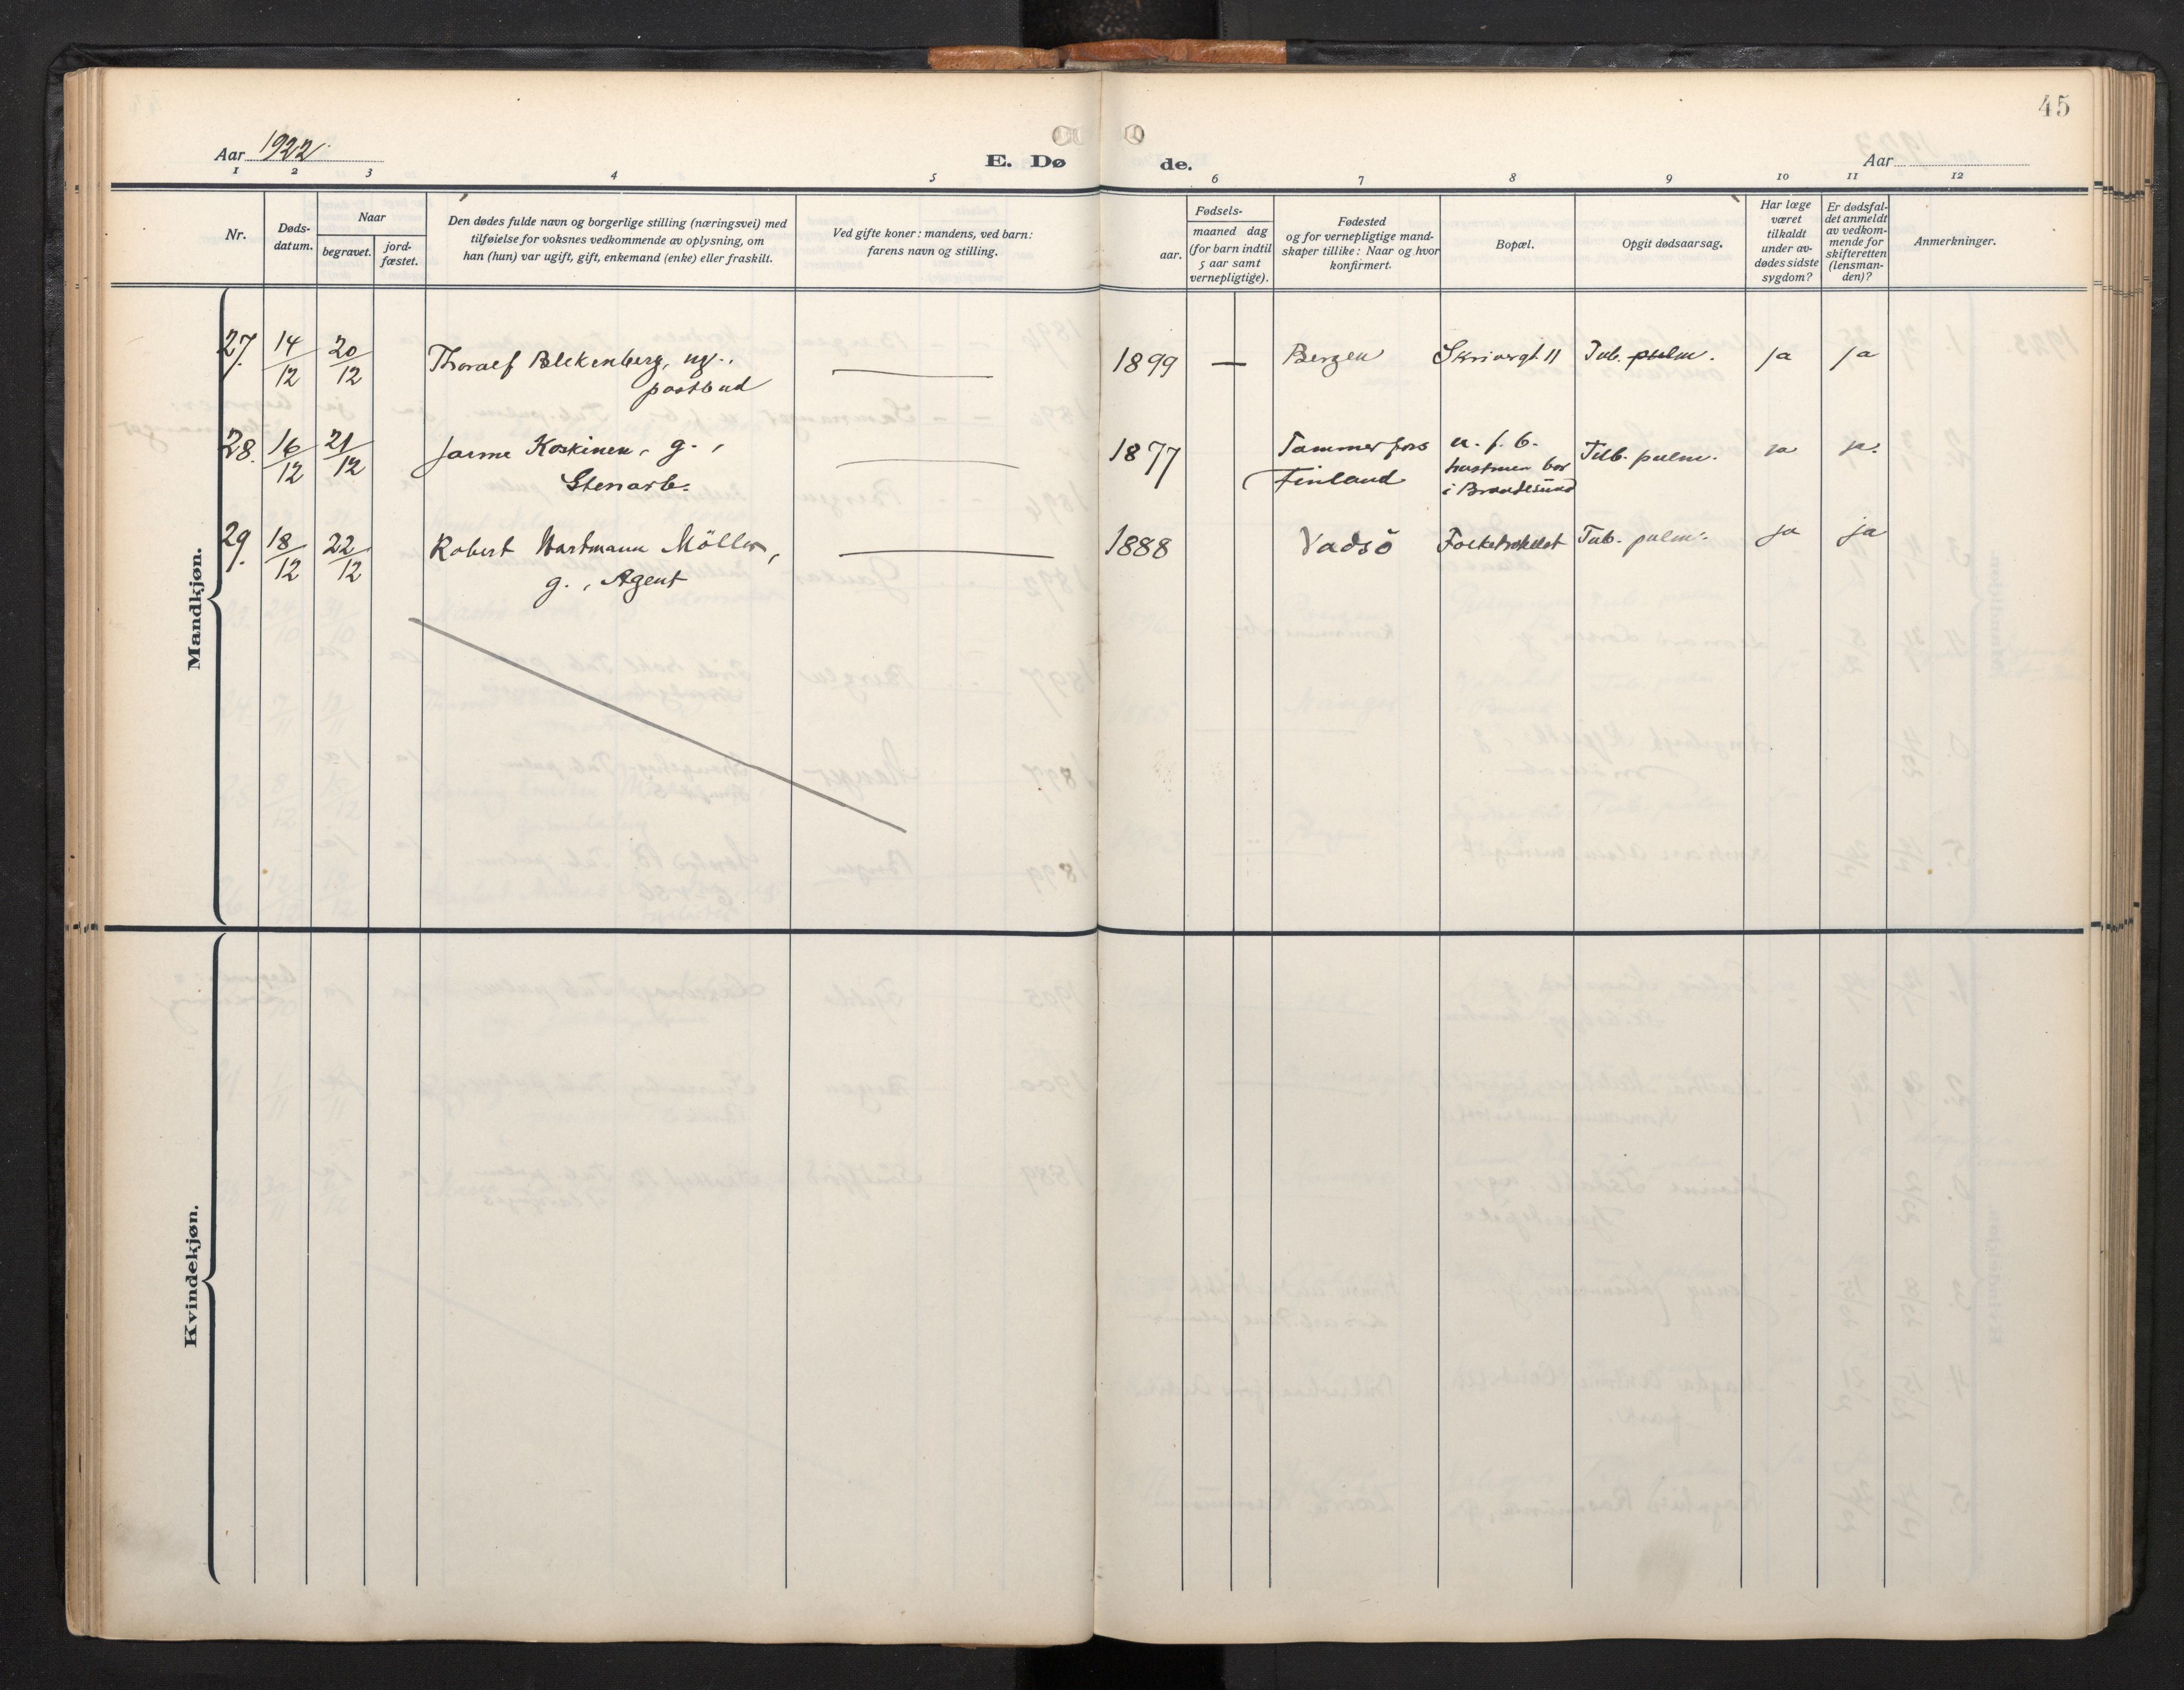 45
Aar 1922.
E. Dø de.
Aar
1 2 3 4 5 6 7 8 9 10 11 12
Nr.
Døds-
datum.
Naar
begravet.
jord-
fæstet.
Den dødes fulde navn og borgerlige stilling (næringsvei) med
tilføielse for voksnes vedkommende av oplysning, om
han (hun) var ugift, gift, enkemand (enke) eller fraskilt.
Ved gifte koner: mandens, ved barn:
farens navn og stilling.
Fødsels-
aar.
maaned dag
(for barn indtil
5 aar samt
vernepligtige).
Fødested
og for vernepligtige mand-
skaper tillike: Naar og hvor
konfirmert.
Bopæl.
Opgit dødsaarsag.
Har læge
været
tilkaldt
under av-
dødes sidste
sygdom?
Er dødsfal-
det anmeldt
av vedkom-
mende for
skifteretten
(lensman-
den)?
Anmerkninger.
Mandkjøn.
27. 14/12 20/12 Thoralf Blekenberg, ug., 1899 — Bergen Skrivergt. 11 Tub. pulm. ja ja
postbud
28. 16/12 21/12 Jarme Koskinen, g., 1877 Tammerfors u. f. b. Tub. pulm. ja ja.
Stenarb. Finland hustruen bor
i Brandesund
29. 18/12 22/12 Robert Hartmann Möller, 1888 Vadsö Folkehotellet Tub. pulm. ja ja
g., Agent
Kvindekjøn.